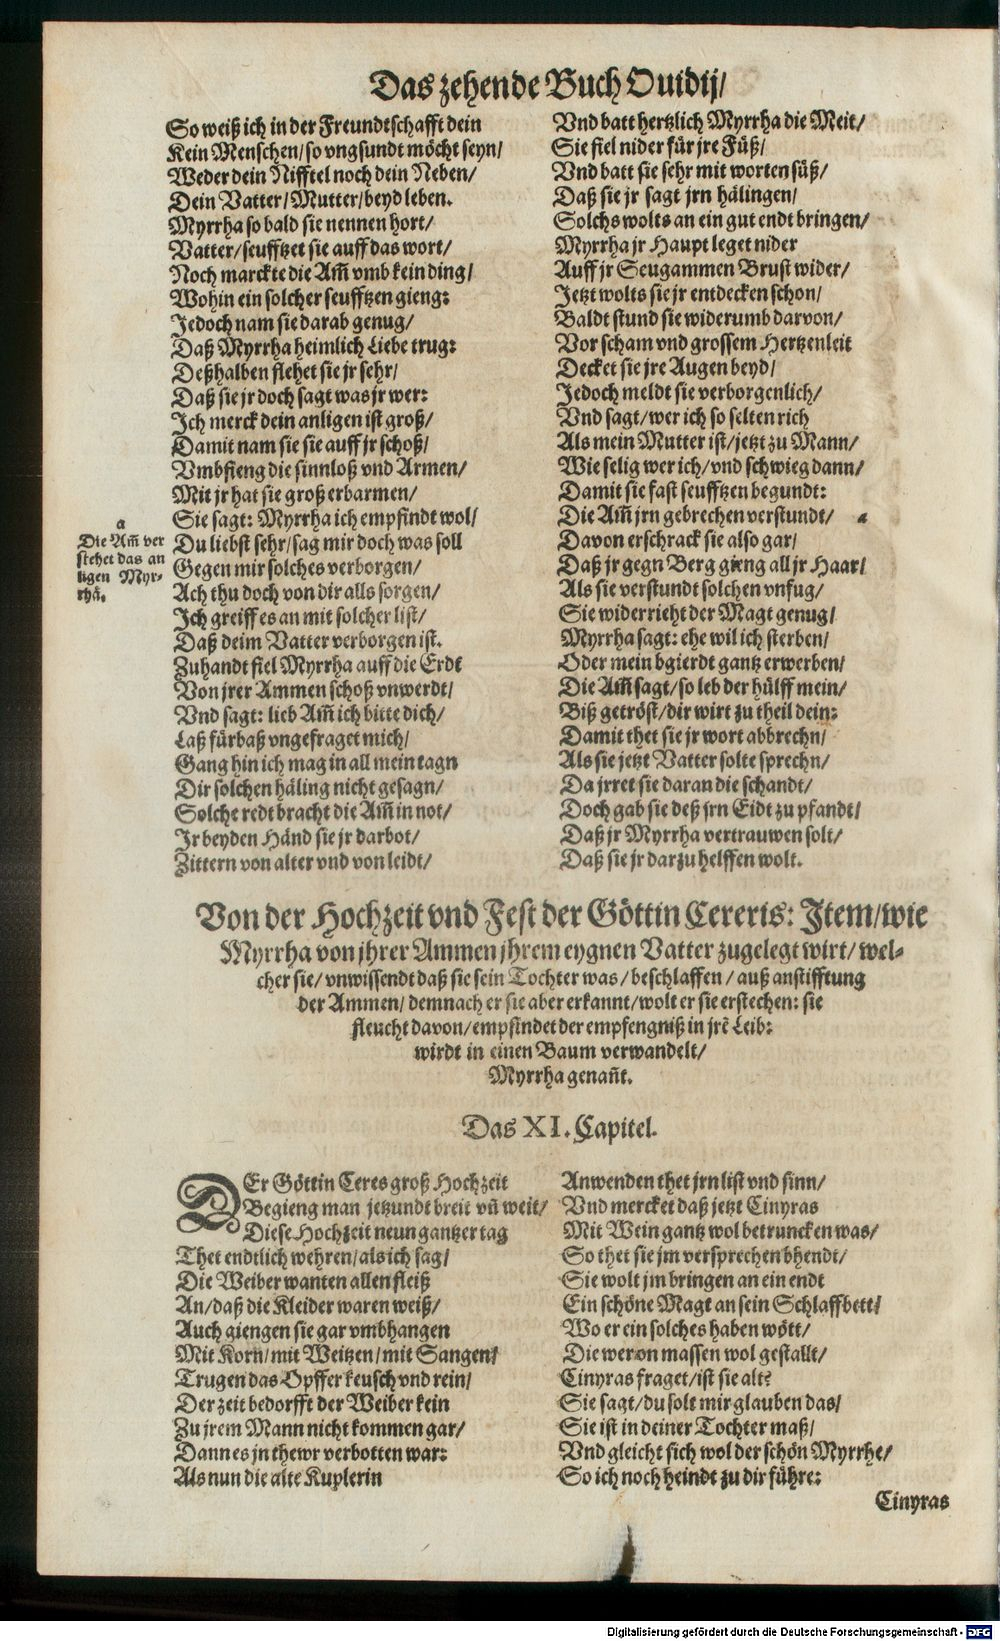 Das zehende Buch Ouidij/
So weiß ich in der Freundtschafft dein
Kein Menschen/so vngsundt möcht seyn/
Weder dein Nifftel noch dein Neben/
Dein Vatter/Mutter/beyd leben.
Myrrha so bald sie nennen hort/
Vatter/seufftzet sie auff das wort/
Noch marckte die Am̃ vmb kein ding/
Wohin ein solcher seufftzen gieng:
Jedoch nam sie darab genug/
Daß Myrrha heimlich Liebe trug:
Deßhalben flehet sie jr sehr/
Daß sie jr doch sagt was jr wer:
Jch merck dein anligen ist groß/
Damit nam sie sie auff jr schoß/
Vmbfieng die sinnloß vnd Armen/
Mit jr hat sie groß erbarmen/
Sie sagt: Myrrha ich empfindt wol/
Du liebst sehr/sag mir doch was soll
Gegen mir solches verborgen/
Ach thu doch von dir alls sorgen/
Jch greiff es an mit solcher list/
Daß deim Vatter verborgen ist.
Zuhandt fiel Myrrha auff die Erdt
Von jrer Ammen schoß vnwerdt/
Vnd sagt: lieb Am̃ ich bitte dich/
Laß fürbaß vngefraget mich/
Gang hin ich mag in all mein tagn
Dir solchen häling nicht gesagn/
Solche redt bracht die Am̃ in not/
Jr beyden Händ sie jr darbot/
Zittern von alter vnd von leidt/
a
Die Am̃ ver
stehet das an
ligen Myr-
rhã.
Vnd batt hertzlich Myrrha die Meit/
Sie fiel nider für jre Füß/
Vnd batt sie sehr mit worten süß/
Daß sie jr sagt jrn hälingen/
Solchs wolts an ein gut endt bringen/
Myrrha jr Haupt leget nider
Auff jr Seugammen Brust wider/
Jetzt wolts sie jr entdecken schon/
Baldt stund sie widerumb darvon/
Vor scham vnd grossem Hertzenleit
Decket sie jre Augen beyd/
Jedoch meldt sie verborgenlich/
Vnd sagt/wer ich so selten rich
Als mein Mutter ist/jetzt zu Mann/
Wie selig wer ich/vnd schwieg dann/
Damit sie fast seufftzen begundt:
Die Am̃ jrn gebrechen verstundt/ a
Davon erschrack sie also gar/
Daß jr gegn Berg gieng all jr Haar/
Als sie verstundt solchen vnfug/
Sie widerrieht der Magt genug/
Myrrha sagt: ehe wil ich sterben/
Oder mein bgierdt gantz erwerben/
Die Am̃ sagt/so leb der hülff mein/
Biß getröst/dir wirt zu theil dein:
Damit thet sie jr wort abbrechn/
Als sie jetzt Vatter solte sprechn/
Da jrret sie daran die schandt/
Doch gab sie deß jrn Eidt zu pfandt/
Daß jr Myrrha vertrauwen solt/
Daß sie jr darzu helffen wolt.
Von der Hochzeit vnd Fest der Göttin Cereris: Jtem/wie
Myrrha von jhrer Ammen jhrem eygnen Vatter zugelegt wirt/ wel-
cher sie/ vnwissendt daß sie sein Tochter was/ beschlaffen/ auß anstifftung
der Ammen/ demnach er sie aber erkannt/wolt er sie erstechen: sie
fleucht davon/empfindet der empfengniß in jrẽ Leib:
wirdt in einen Baum verwandelt/
Myrrha genañt.
Das XI. Capitel.
DEr Göttin Ceres groß Hochzeit
Begieng man jetzundt breit vñ weit/
Diese Hochzeit neun gantzer tag
Thet endtlich wehren/als ich sag/
Die Weiber wanten allen fleiß
An/daß die Kleider waren weiß/
Auch giengen sie gar vmbhangen
Mit Korn/mit Weitzen/mit Sangen/
Trugen das Opffer keusch vnd rein/
Der zeit bedorfft der Weiber kein
Zu jrem Mann nicht kommen gar/
Dann es jn thewr verbotten war:
Als nun die alte Kuplerin
Anwenden thet jrn list vnd sinn/
Vnd mercket daß jetzt Cinyras
Mit Wein gantz wol betruncken was/
So thet sie jm versprechen bhendt/
Sie wolt jm bringen an ein endt
Ein schöne Magt an sein Schlaffbett/
Wo er ein solches haben wött/
Die wer on massen wol gestallt/
Cinyras fraget/ist sie alt?
Sie sagt/du solt mir glauben das/
Sie ist in deiner Tochter maß/
Vnd gleicht sich wol der schön Myrrhe/
So ich noch heindt zu dir führe:
Cinyras
Digitalisierung gefördert durch die Deutsche Forschungsgemeinschaft - DFG